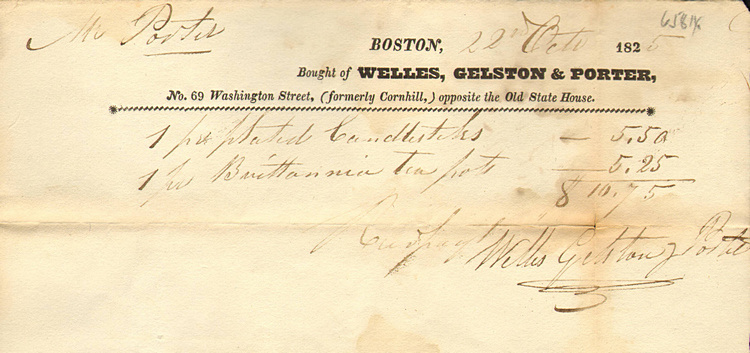 6581K
Mr Porter
BOSTON, 22nd Octr 1825
Bought of WELLES, GELSTON & PORTER,
No. 69 Washington Street, (formerly Cornhill,) opposite the Old State House.
1 pr plated Candlesticks — 5.50
1 pr Brittannia tea pots — 5.25
$ 10.75
Recd payt Welles Gelston & Porter